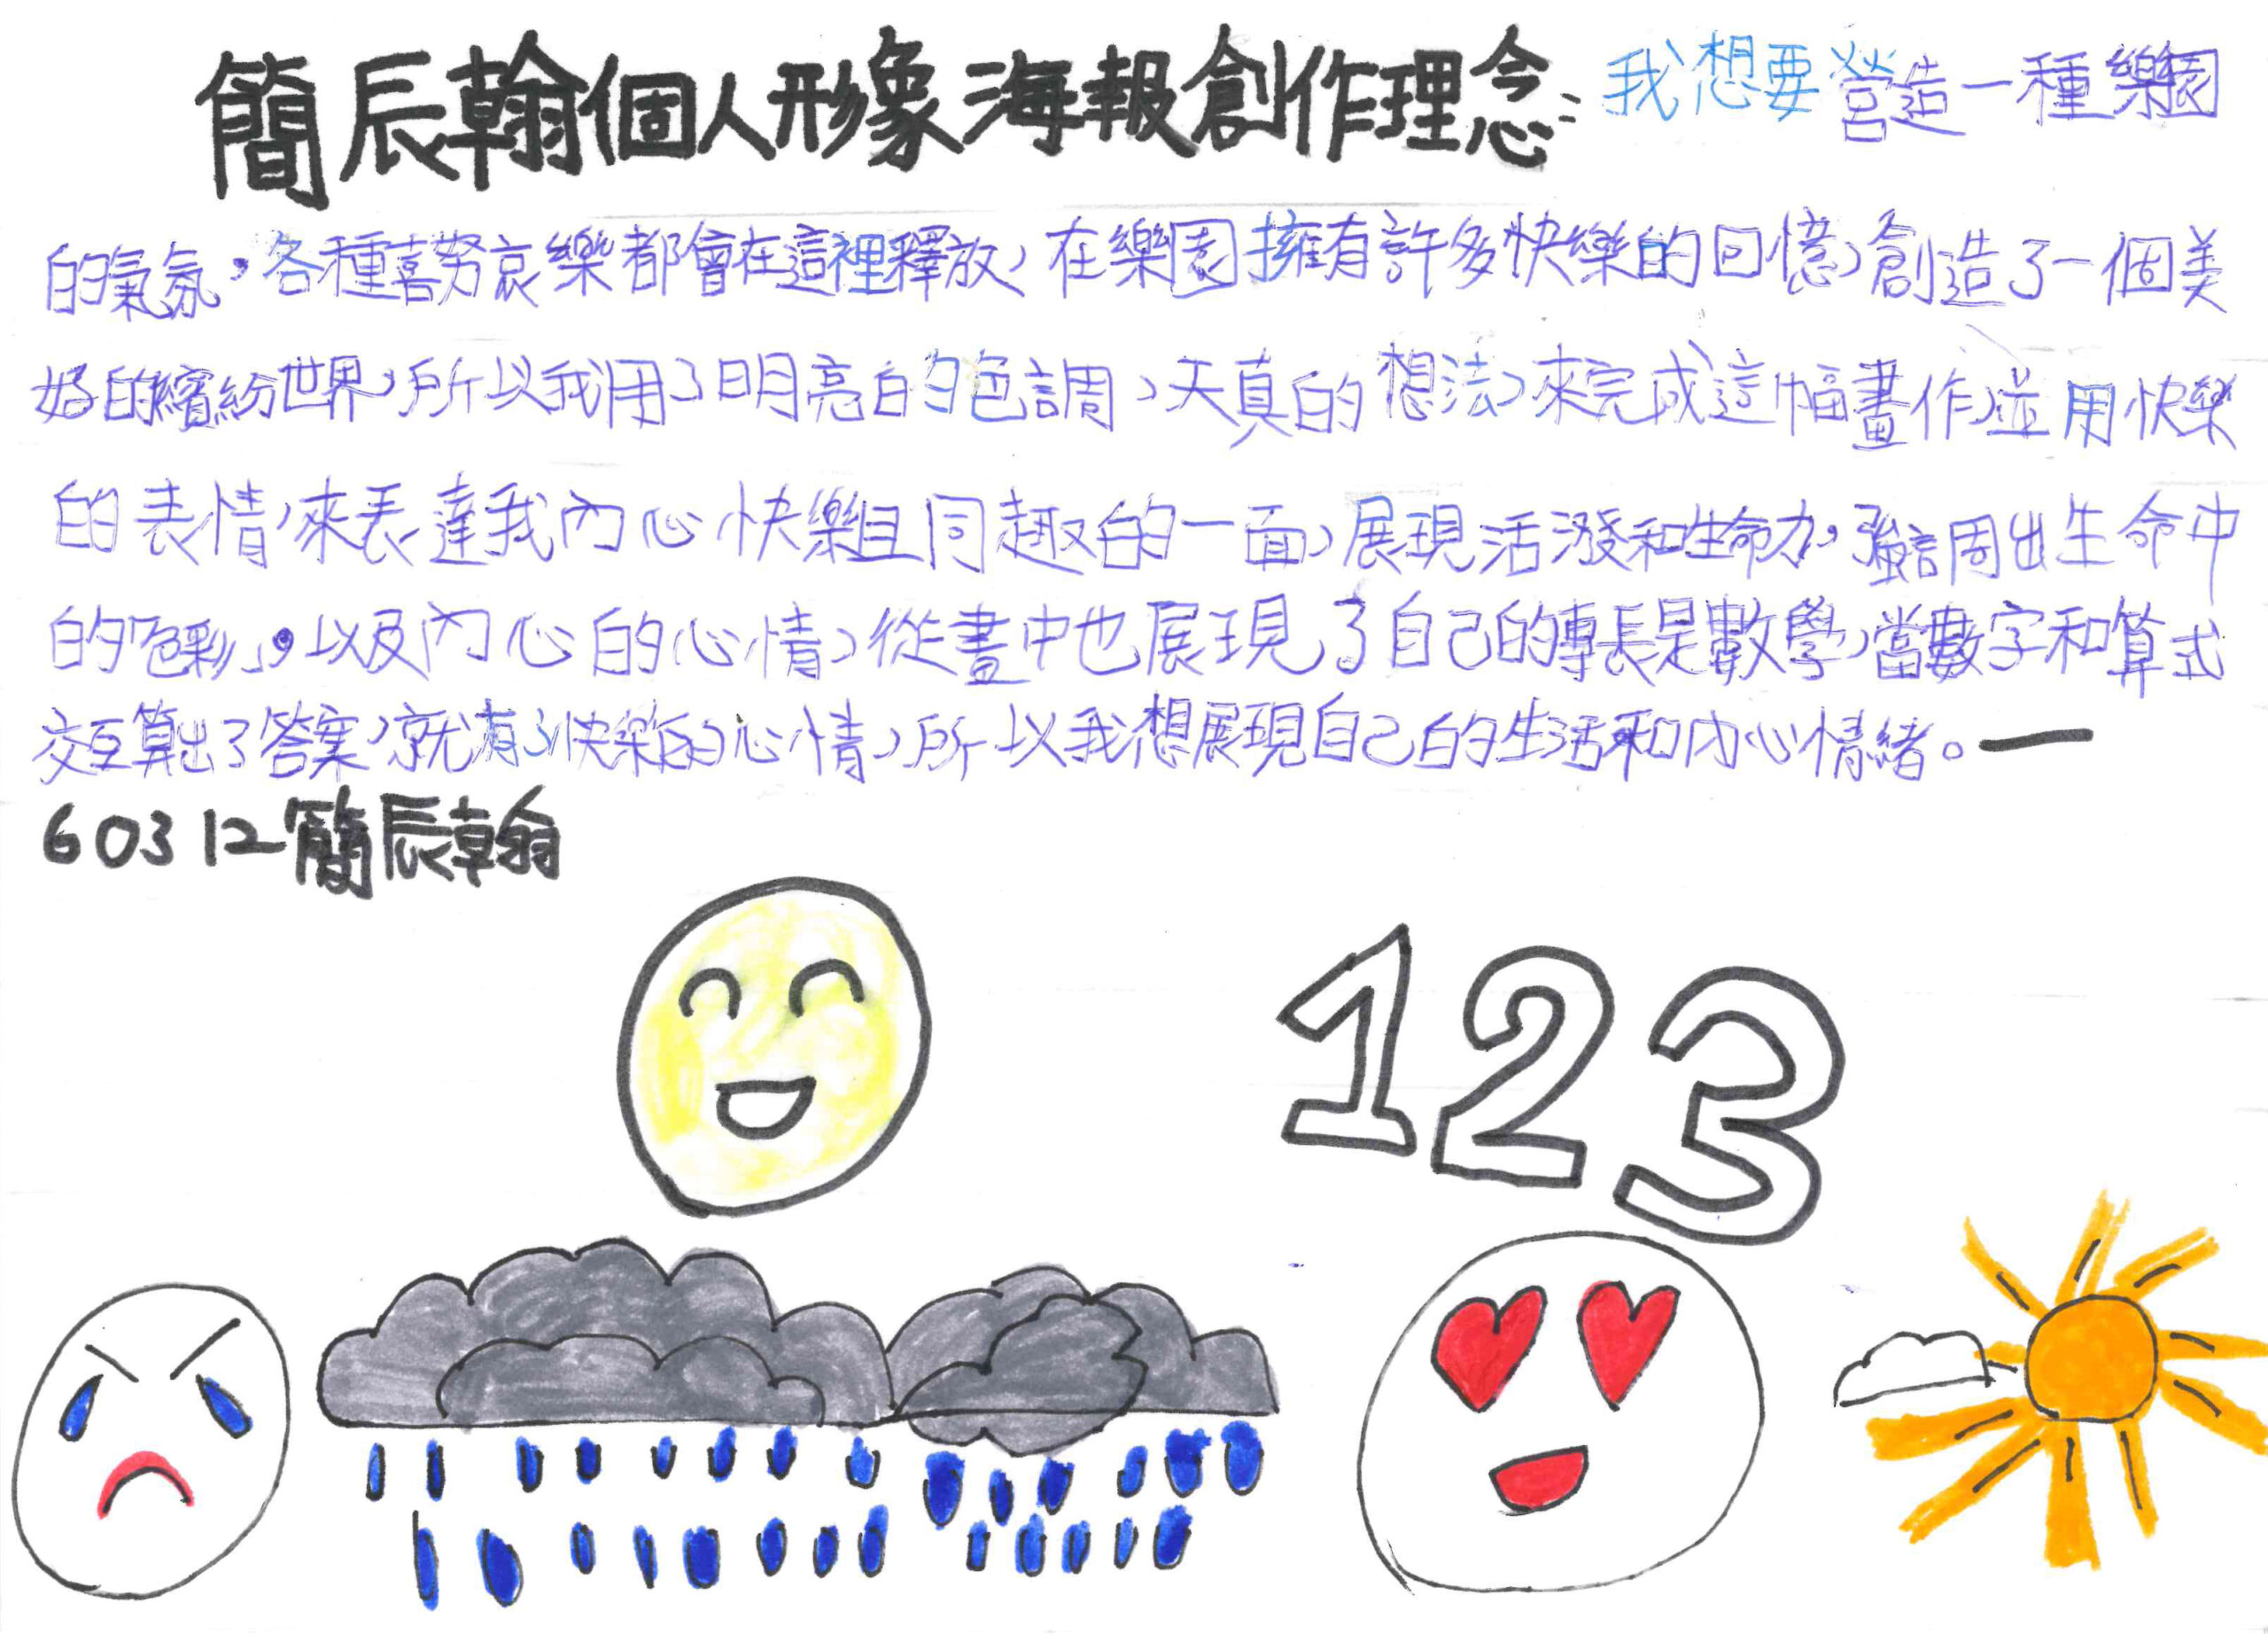 簡辰翰個人形象海報創作理念:我想要營造一種樂園
的氣氛,各種喜努哀樂都會在這裡釋放,在樂園擁有許多快樂的回憶,創造了一個美
好的繽紛世界,所以我用了明亮的色調,天真的想法,來完成這幅畫作,並用快樂
的表情,來表達我內心快樂且同趣的一面,展現活潑和生命力,強調出生命中
的「色彩」,以及內心的心情,從畫中也展現了自己的專長是數學,當數字和算式
交互算出了答案,就有了快樂的心情,所以我想展現自己的生活和內心情緒。—
60312簡辰翰
123